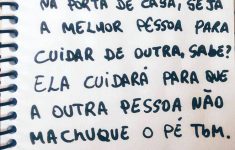 NA PORTA DE CASA, SEJA
A MELHOR PESSOA PARA
CUIDAR DE OUTRA, SABE?
ELA CUIDARÁ PARA QUE
A OUTRA PESSOA NÃO
MACHUQUE O PÉ TBM.